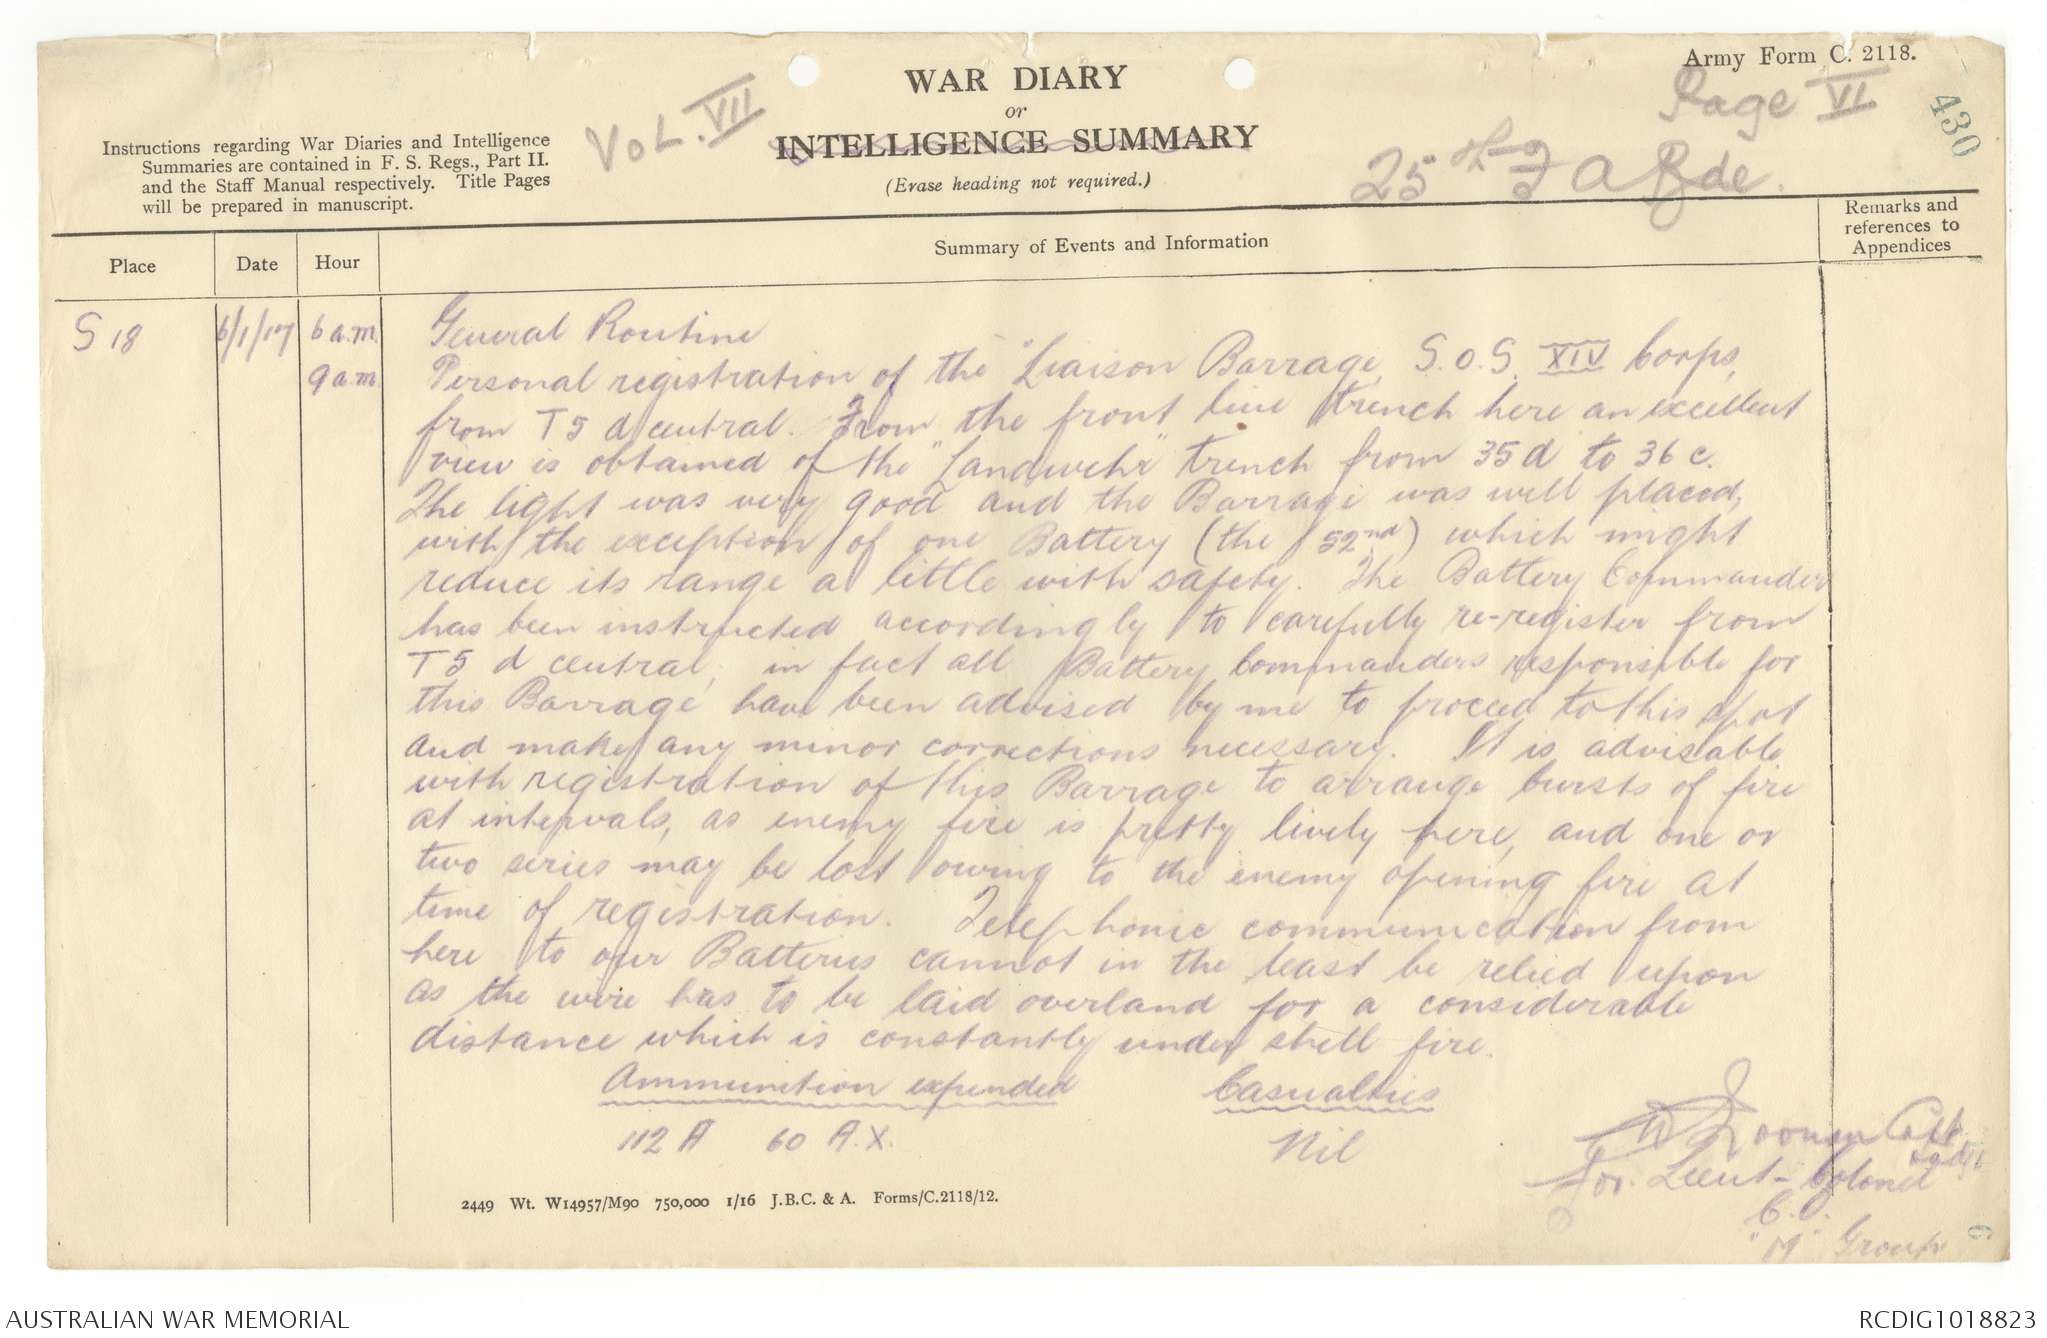 Army Form C. 2118.
WAR DIARY
or
INTELLIGENCE SUMMARY
(Erase heading not required.)
Instructions regarding War Diaries and Intelligence
Summaries are contained in F. S. Regs., Part II.
and the Staff Manual respectively. Title Pages
will be prepared in manuscript.
VOL. VII
Page VI
25th F A Bde.
430
Place
Date
Hour
Summary of Events and Information
Remarks and
references to
Appendices
S 18 6/1/17 6 a.m. General Routine
9 a.m. Personal registration of the "Liaison Barrage, S.O.S. XIV Corps,
from T 5 d central. From the front line trench here an excellent
view is obtained of the "Landwehr" trench from 35 d to 36 c.
The light was very good and the Barrage was well placed,
with the exception of one Battery (the 52nd) which might
reduce its range a little with safety. The Battery Commander
has been instructed accordingly to carefully re-register from
T 5 d central, in fact all Battery Commanders responsible for
this Barrage have been advised by me to proceed to this spot
and make any minor corrections necessary. It is advisable
with registration of this Barrage to arrange bursts of fire
at intervals, as enemy fire is pretty lively here, and one or
two series may be lost owing to the enemy opening fire at
time of registration. Telephonic communication from
here to our Batteries cannot in the least be relied upon
as the wire has to be laid overland for a considerable
distance which is constantly under shell fire.
Ammunition expended Casualties
112 A 60 A.X. Nil
For. Lieut-Colonel
C.O.
"M" Group
2449 Wt. W14957/M90 750,000 1/16 J.B.C. & A. Forms/C.2118/12.
6
AUSTRALIAN WAR MEMORIAL
RCDIG1018823